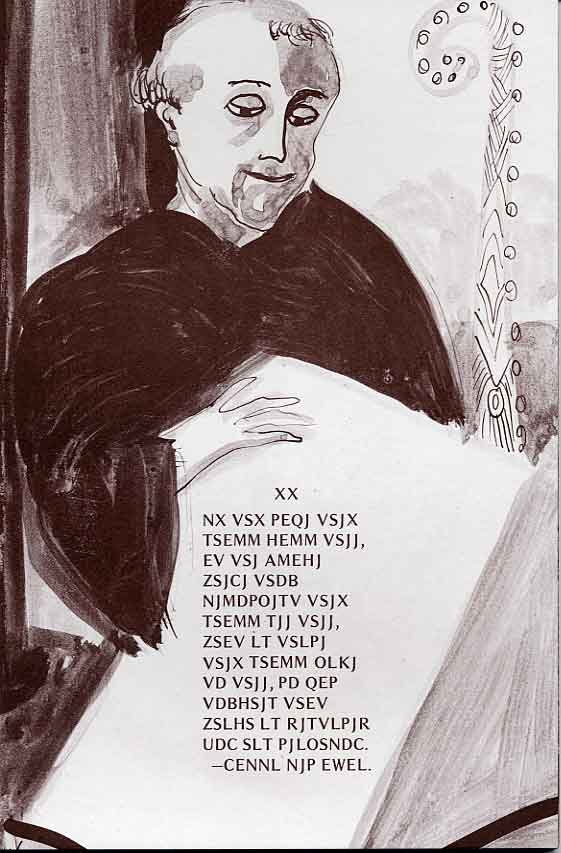 XX
NX VSX PEQJ VSJX
TSEMM HEMM VSJJ,
EV VSJ AMEHJ
ZSJCJ VSDB
NJMDPOJTV VSJX
TSEMM TJJ VSJJ,
ZSEV LT VSLPJ
VSJX TSEMM OLKJ
VD VSJJ, PD QEP
VDBHSJT VSEV
ZSLHS LT RJTVLPJR
UDC SLT PJLOSNDC.
—CENNL NJP EWEL.